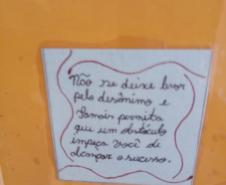 Não se deixe levar
pelo desânimo e
Jamais permita
que um obstáculo
impeça você de
alcançar o sucesso.